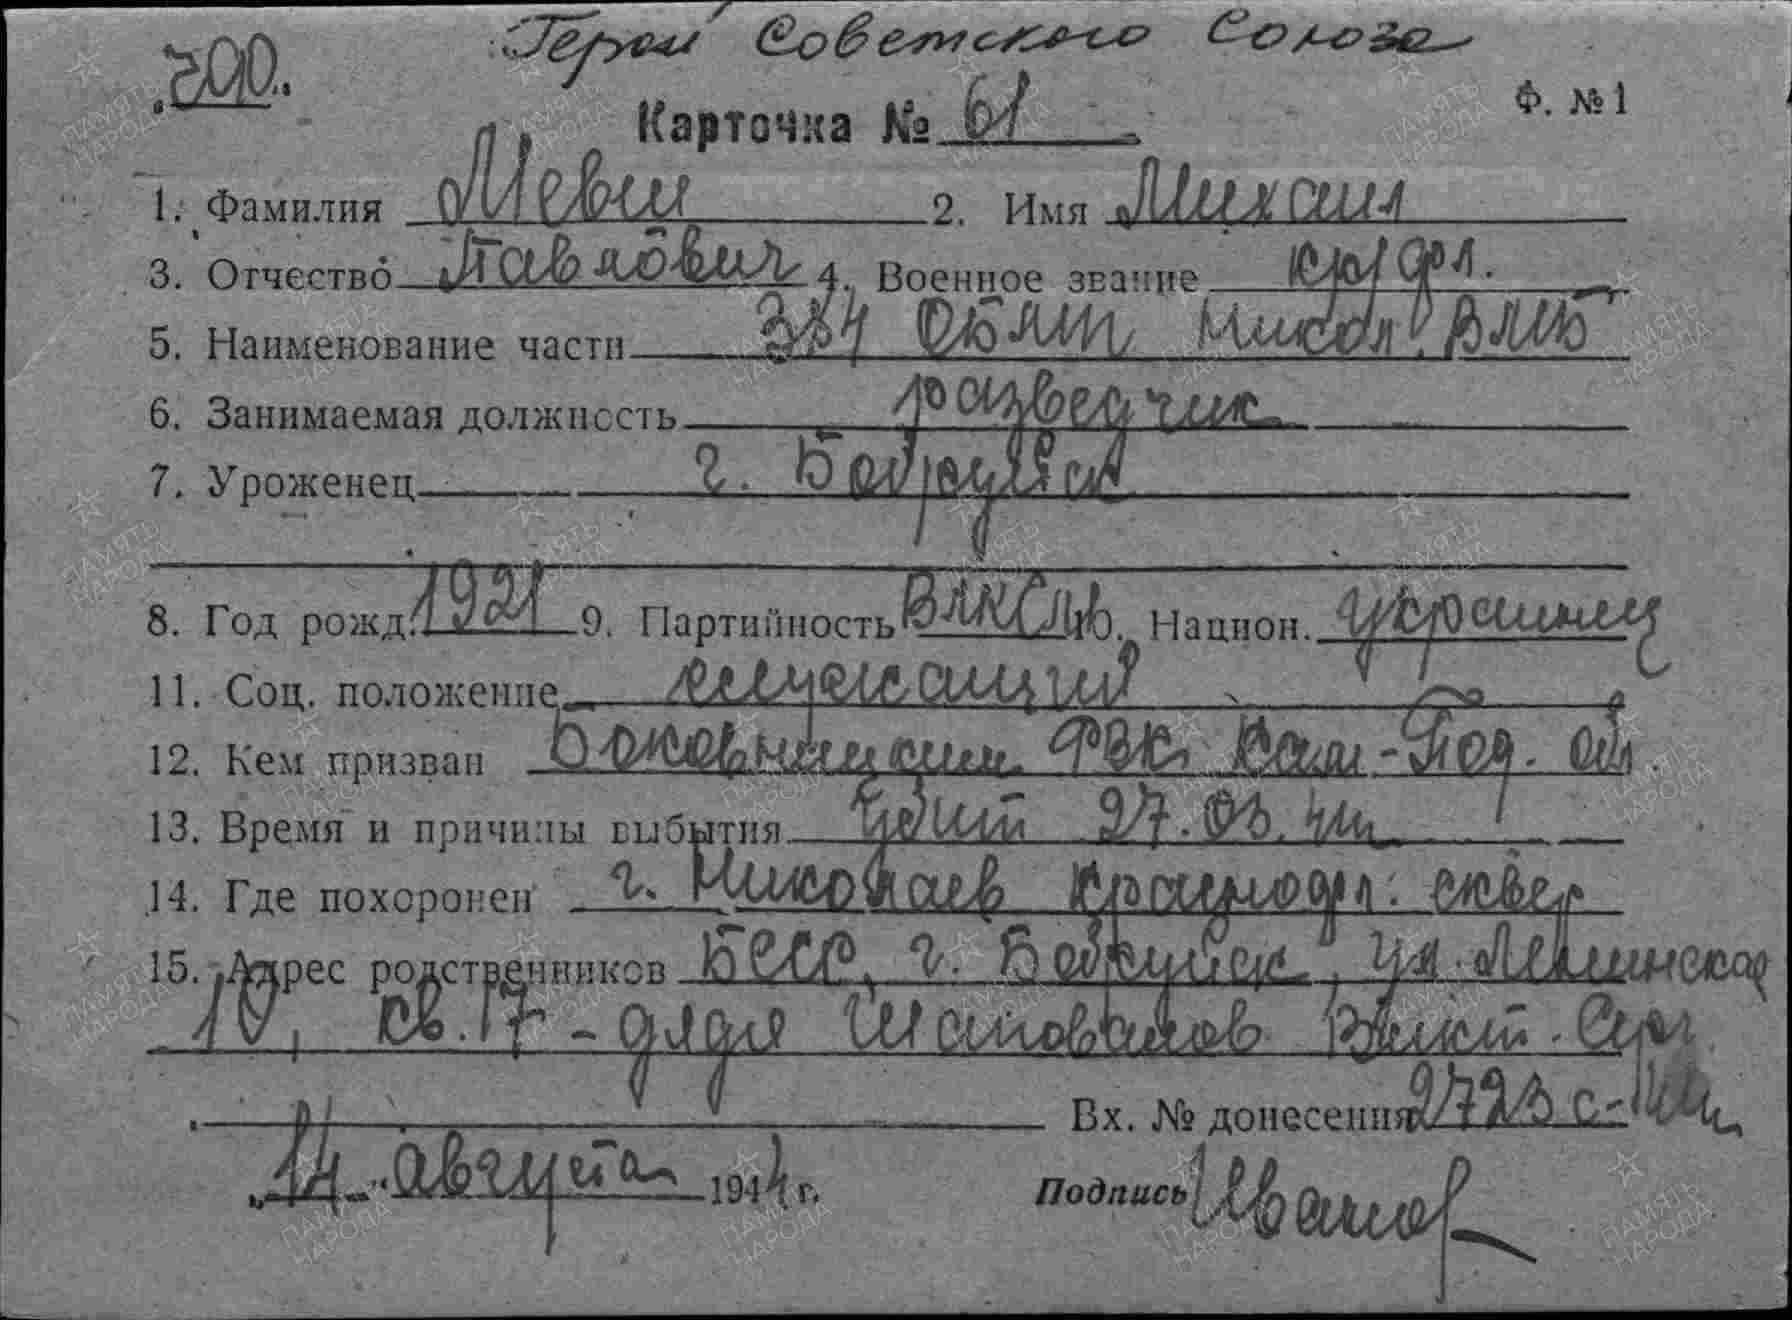 Герой Советского Союза
200.
Ф. №1
Карточка № 61
1. Фамилия Мевш 2. Имя Михаил
3. Отчество Павлович 4. Военное звание кр/фл.
5. Наименование части 384 ОБМП Никол. ВМБ
6. Занимаемая должность разведчик
7. Уроженец г. Бобруйск
8. Год рожд. 1921 9. Партийность ВЛКСМ 10. Национ. украинец
11. Соц. положение служащий
12. Кем призван РВК Кам-Под. обл
13. Время и причины выбытия убит 27.03.44
14. Где похоронен г. Николаев сквер
15. Адрес родственников БССР, г. Бобруйск, ул. Ленинская
10, кв. 17 - дядя Шаповалов
Вх. № донесения 2723 с-44
„14" августа 1944 г. Подпись Иванов
ПАМЯТЬ НАРОДА